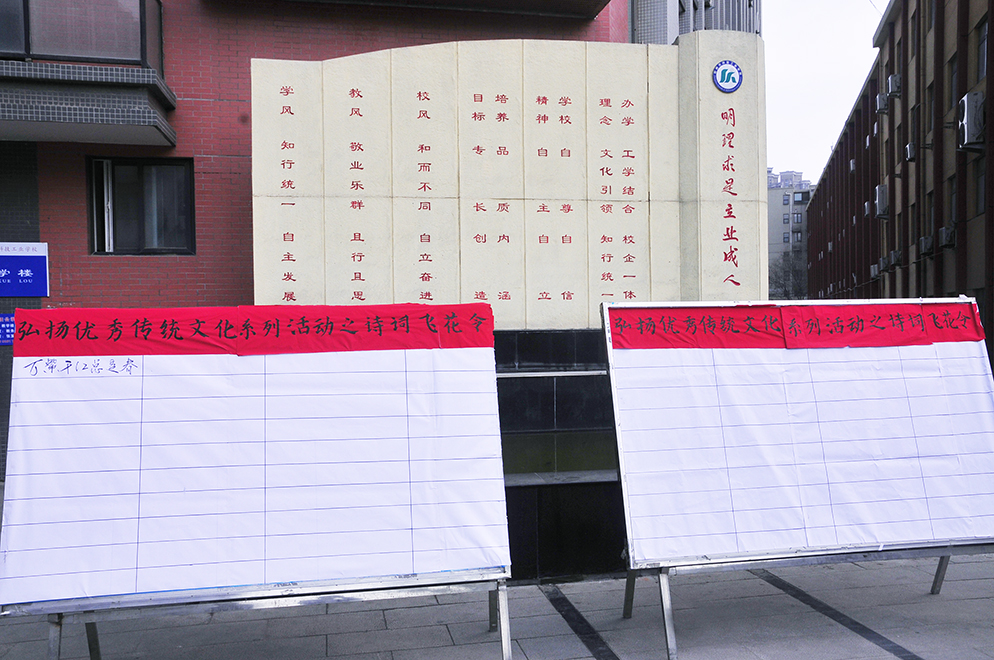 明理求是立业成人
办学 工学结合 校企一体
理念 文化引领 知行统一
学校 自尊自信
精神 自主自立
培养 品质内涵
目标 专长创造
校风 和而不同 自立奋进
教风 敬业乐群 且行且思
学风 知行统一 自主发展
学楼
XUE LOU
弘扬优秀传统文化系列活动之诗词飞花令
万紫千红总是春
弘扬优秀传统文化系列活动之诗词飞花令